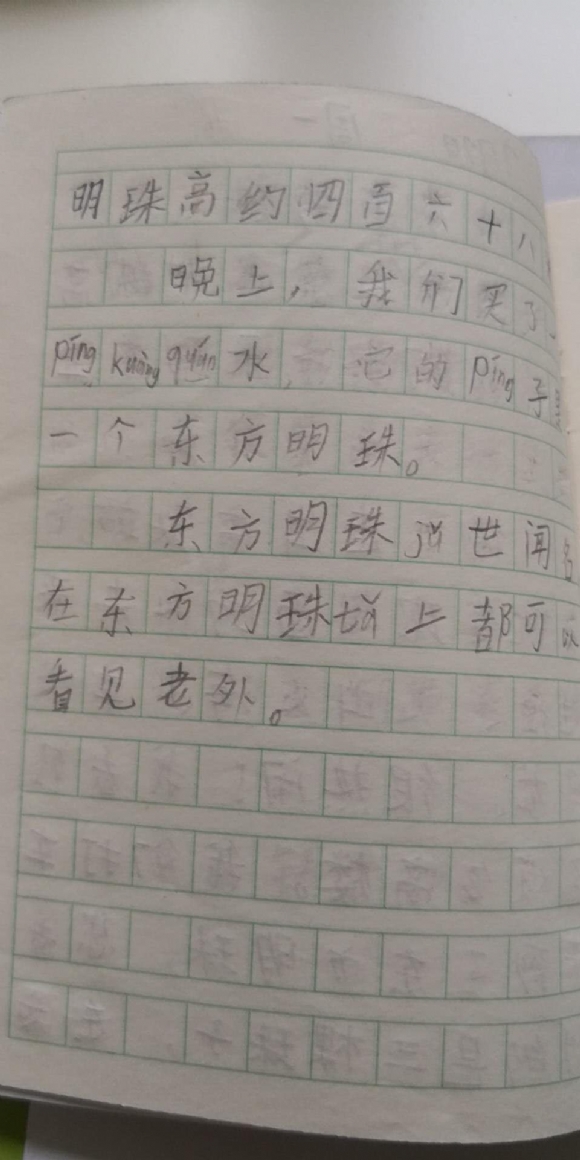 明珠高约四百六十八
晚上，我们买了一
píng kuàng quán水，它的píng子
一个东方明珠。
东方明珠说世闻名
在东方明珠tǎ上都可以
看见老外。